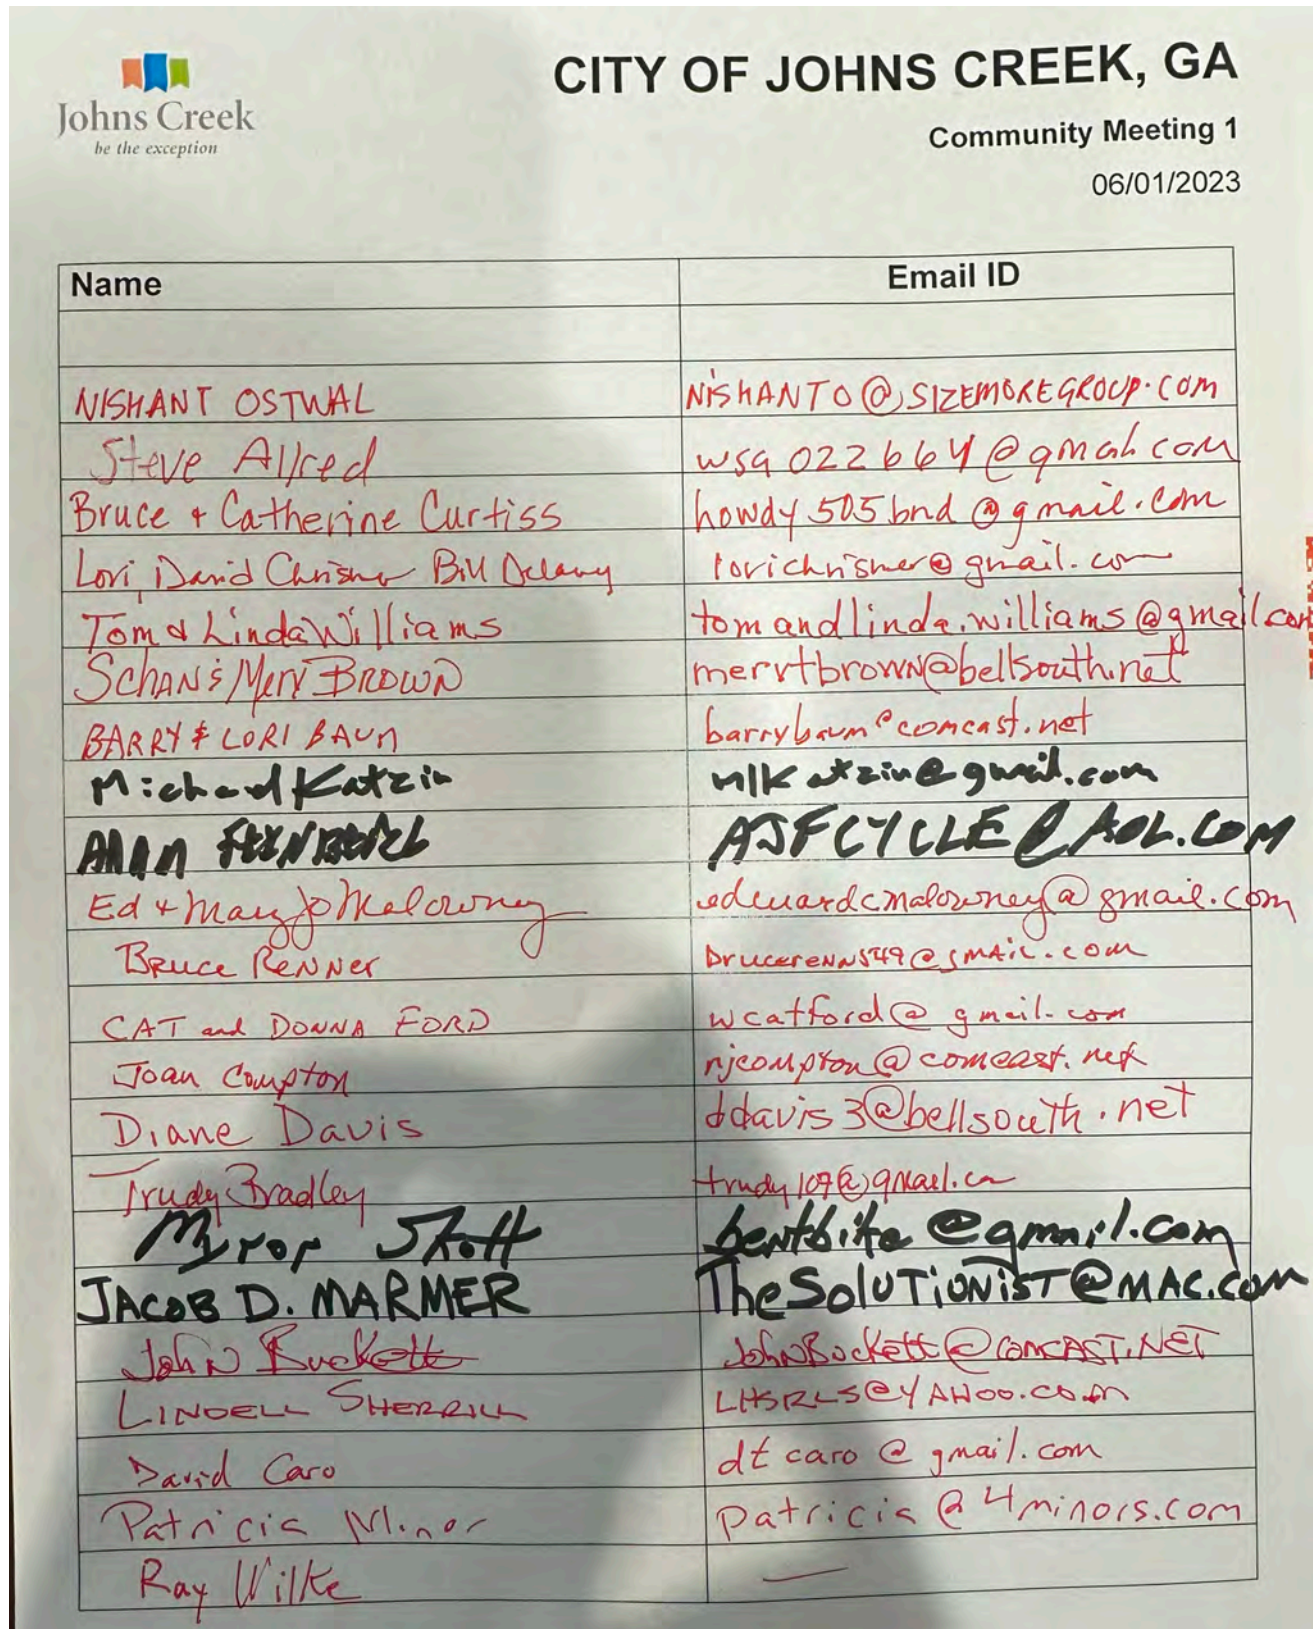 Johns Creek
be the exception
CITY OF JOHNS CREEK, GA
Community Meeting 1
06/01/2023
Name Email ID
NISHANT OSTWAL NISHANTO@SIZEMOREGROUP.COM
Steve Allred wsa022664@gmail.com
Bruce + Catherine Curtiss howdy505bnd@gmail.com
Lori, David Chrismer Bill Delany lorichrismer@gmail.com
Tom & Linda Williams tomandlinda.williams@gmail.com
Brown mervtbrown@bellsouth.net
BARRY & LORI BAUM barrybaum@comcast.net
Michael Katzin mlkatzin@gmail.com
AJFCYCLE@AOL.COM
Ed + Mary Jo Malowney edwardcmalowney@gmail.com
Bruce Renner
CAT and DONNA FORD wcatford@gmail.com
Joan Compton njcompton@comcast.net
Diane Davis ddavis3@bellsouth.net
Trudy Bradley
bentbike@gmail.com
JACOB D. MARMER TheSolutionist@MAC.com
John Buckett JohnBuckett@COMCAST.NET
LINDELL SHERRILL LHSRLS@YAHOO.COM
David Caro dtcaro@gmail.com
Patricia Minor patricia@4minors.com
Ray Wilke —